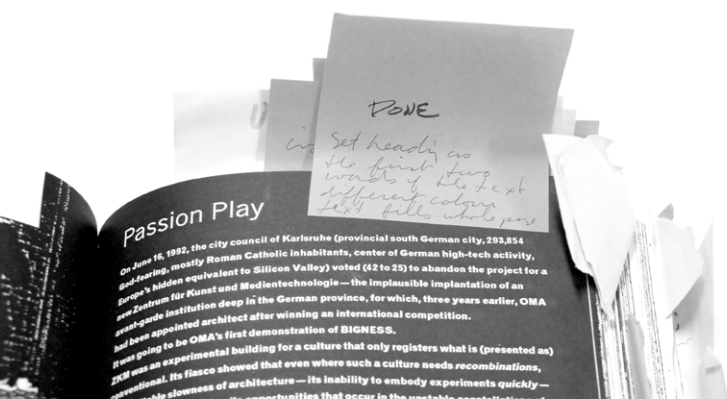 DONE
Set heading as
the first two
words of the text
different colour
text fills whole page
Passion Play
On June 16, 1992, the city council of Karlsruhe (provincial south German city, 293,854
God-fearing, mostly Roman Catholic inhabitants, center of German high-tech activity,
Europe's hidden equivalent to Silicon Valley) voted (42 to 25) to abandon the project for a
new Zentrum für Kunst und Medientechnologie — the implausible implantation of an
avant-garde institution deep in the German province, for which, three years earlier, OMA
had been appointed architect after winning an international competition.
It was going to be OMA's first demonstration of BIGNESS.
ZKM was an experimental building for a culture that only registers what is (presented as)
conventional. Its fiasco showed that even where such a culture needs recombinations,
slowness of architecture — its inability to embody experiments quickly —
opportunities that occur in the unstable constellations of